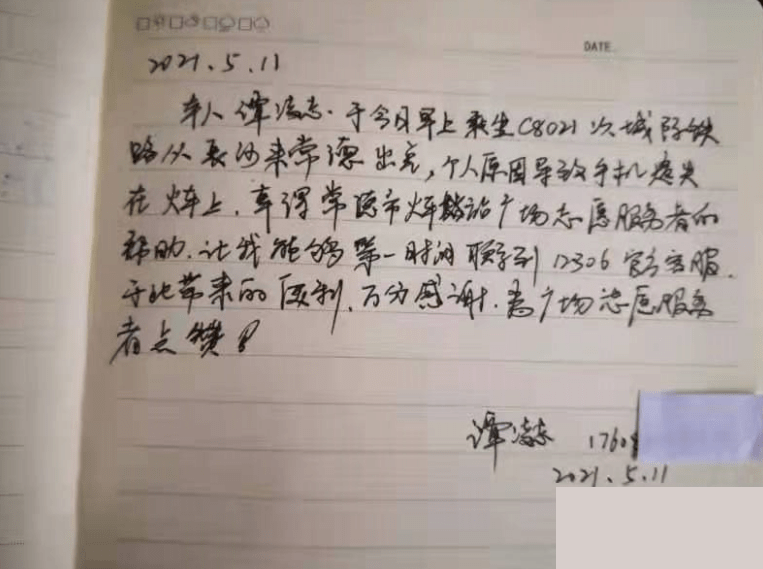 DATE.
2021.5.11
本人谭凌志.于今日早上乘坐C8021次城际铁
路从长沙来常德出差,个人原因导致手机遗失
在火车上.幸得常德市火车站广场志愿服务者的
帮助.让我能够第一时间联系到12306官方客服.
于此带来的便利,万分感谢.为广场志愿服务
者点赞!
谭凌志 1760
2021.5.11